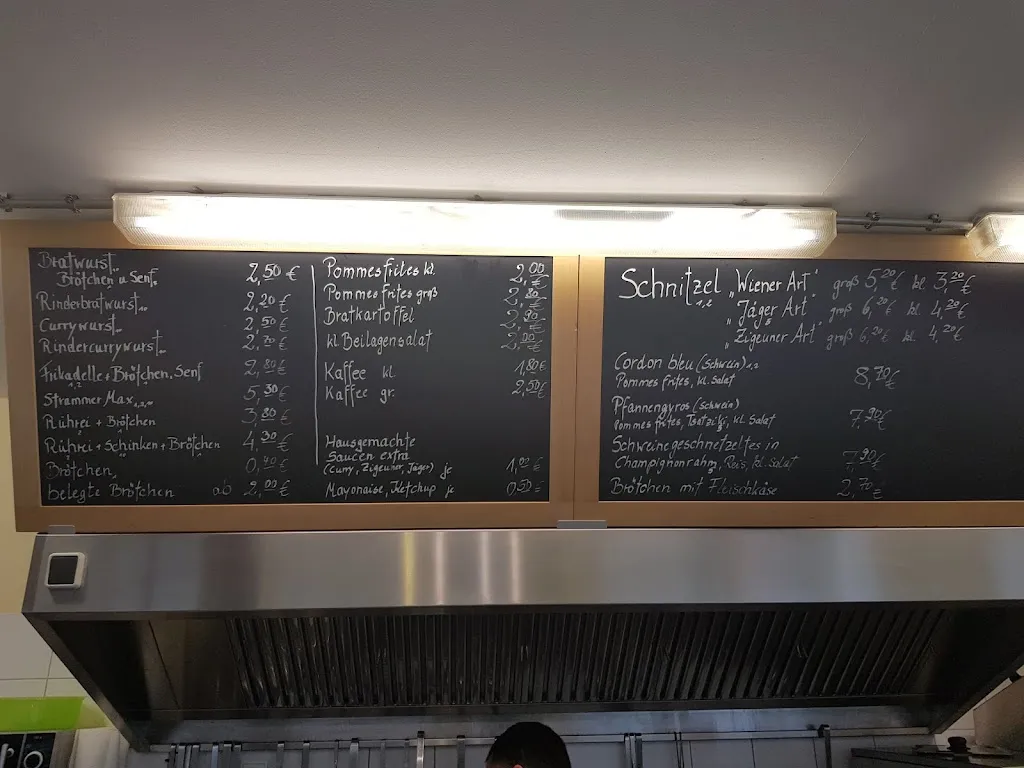 Bratwurst
Brötchen u. Senf 2,50 €
Rinderbratwurst 2,20 €
Currywurst 2,50 €
Rindercurrywurst 2,70 €
Frikadelle + Brötchen, Senf 2,80 €
1,2
Strammer Max 5,30 €
Rührei + Brötchen 3,80 €
Rührei + Schinken + Brötchen 4,30 €
Brötchen 0,40 €
belegte Brötchen ab 2,00 €
Pommes frites kl. 2,00
Pommes frites groß 2,80 €
Bratkartoffel 2,90 €
kl. Beilagensalat €
Kaffee kl. 1,80 €
Kaffee gr. 2,50 €
Hausgemachte
Saucen extra
(Curry, Zigeuner, Jäger) je 1,00 €
Mayonaise, Ketchup je 0,50 €
Schnitzel „Wiener Art" groß 5,20 € kl. 3,20 €
1,2
„Jäger Art" groß 6,20 € kl. 4,20 €
„Zigeuner Art" groß 6,20 € kl. 4,20 €
Cordon bleu (Schwein) 1,2
Pommes frites, kl. Salat 8,70 €
Pfannengyros (Schwein)
Pommes frites, Tsatziki, kl. Salat 7,90 €
Schweinegeschnetzeltes in
Champignonrahm, Reis, kl. Salat 7,90 €
Brötchen mit Fleischkäse 2,70 €